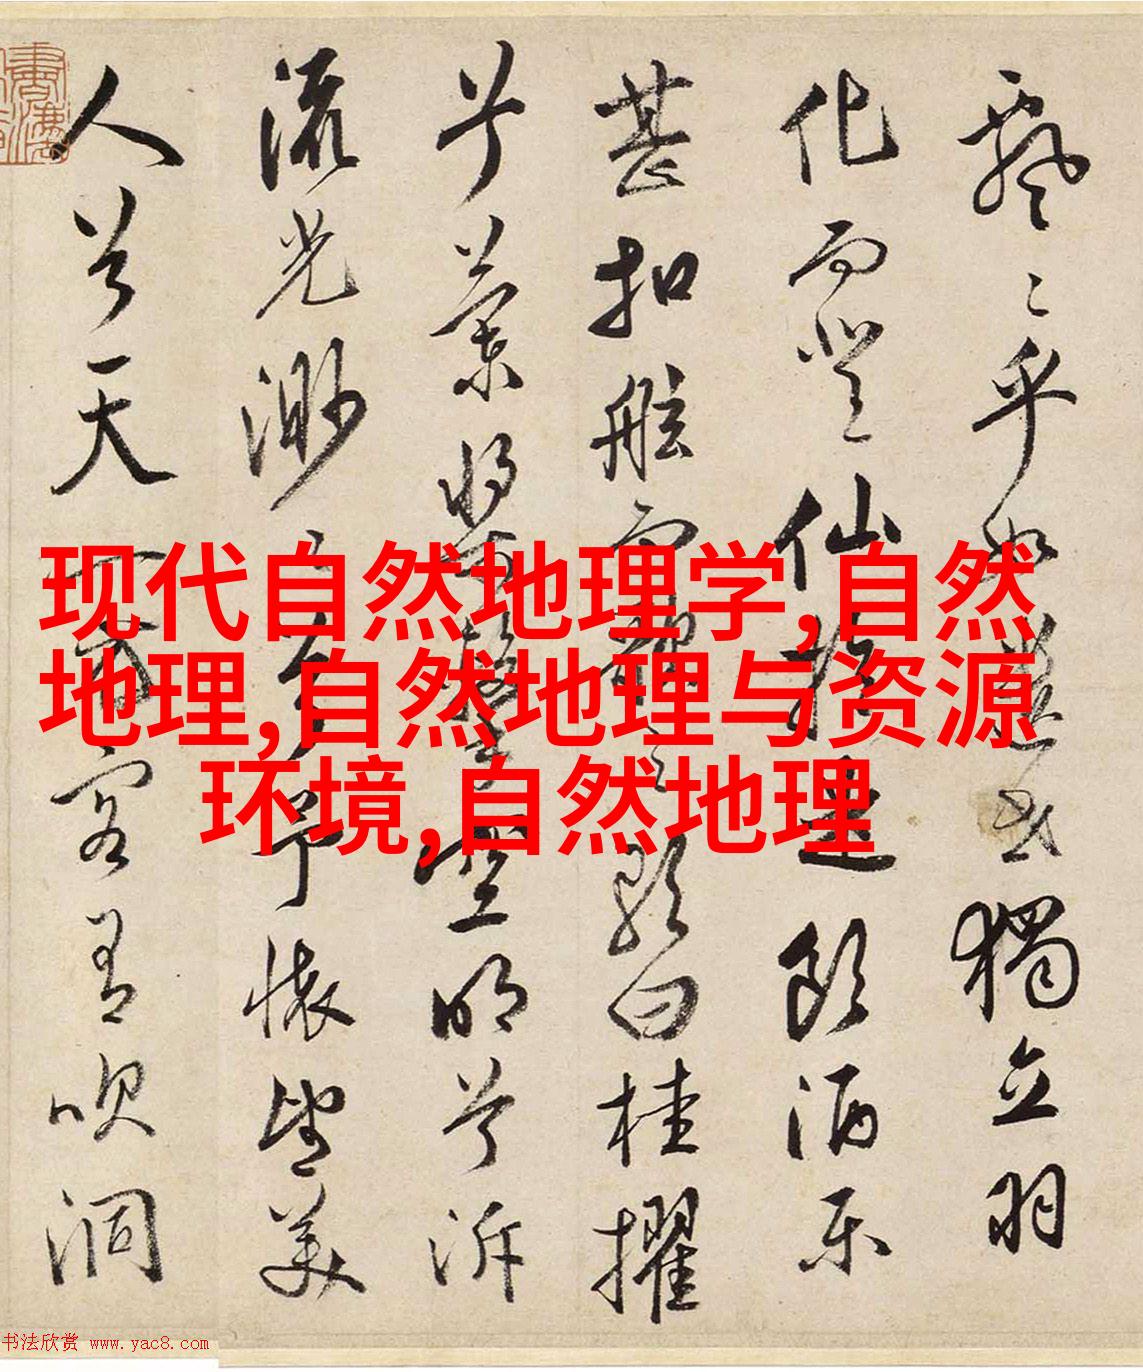 现代自然地理学,自然
地理,自然地理与资源
环境,自然地理
飄々乎如遺世獨立羽
化而登仙於是飲酒樂
甚扣舷而歌之歌曰桂擢
兮蘭槳擊空明兮泝
流光渺々兮予懷望美
人兮天一方客有吹洞
书法欣赏 www.yac8.com